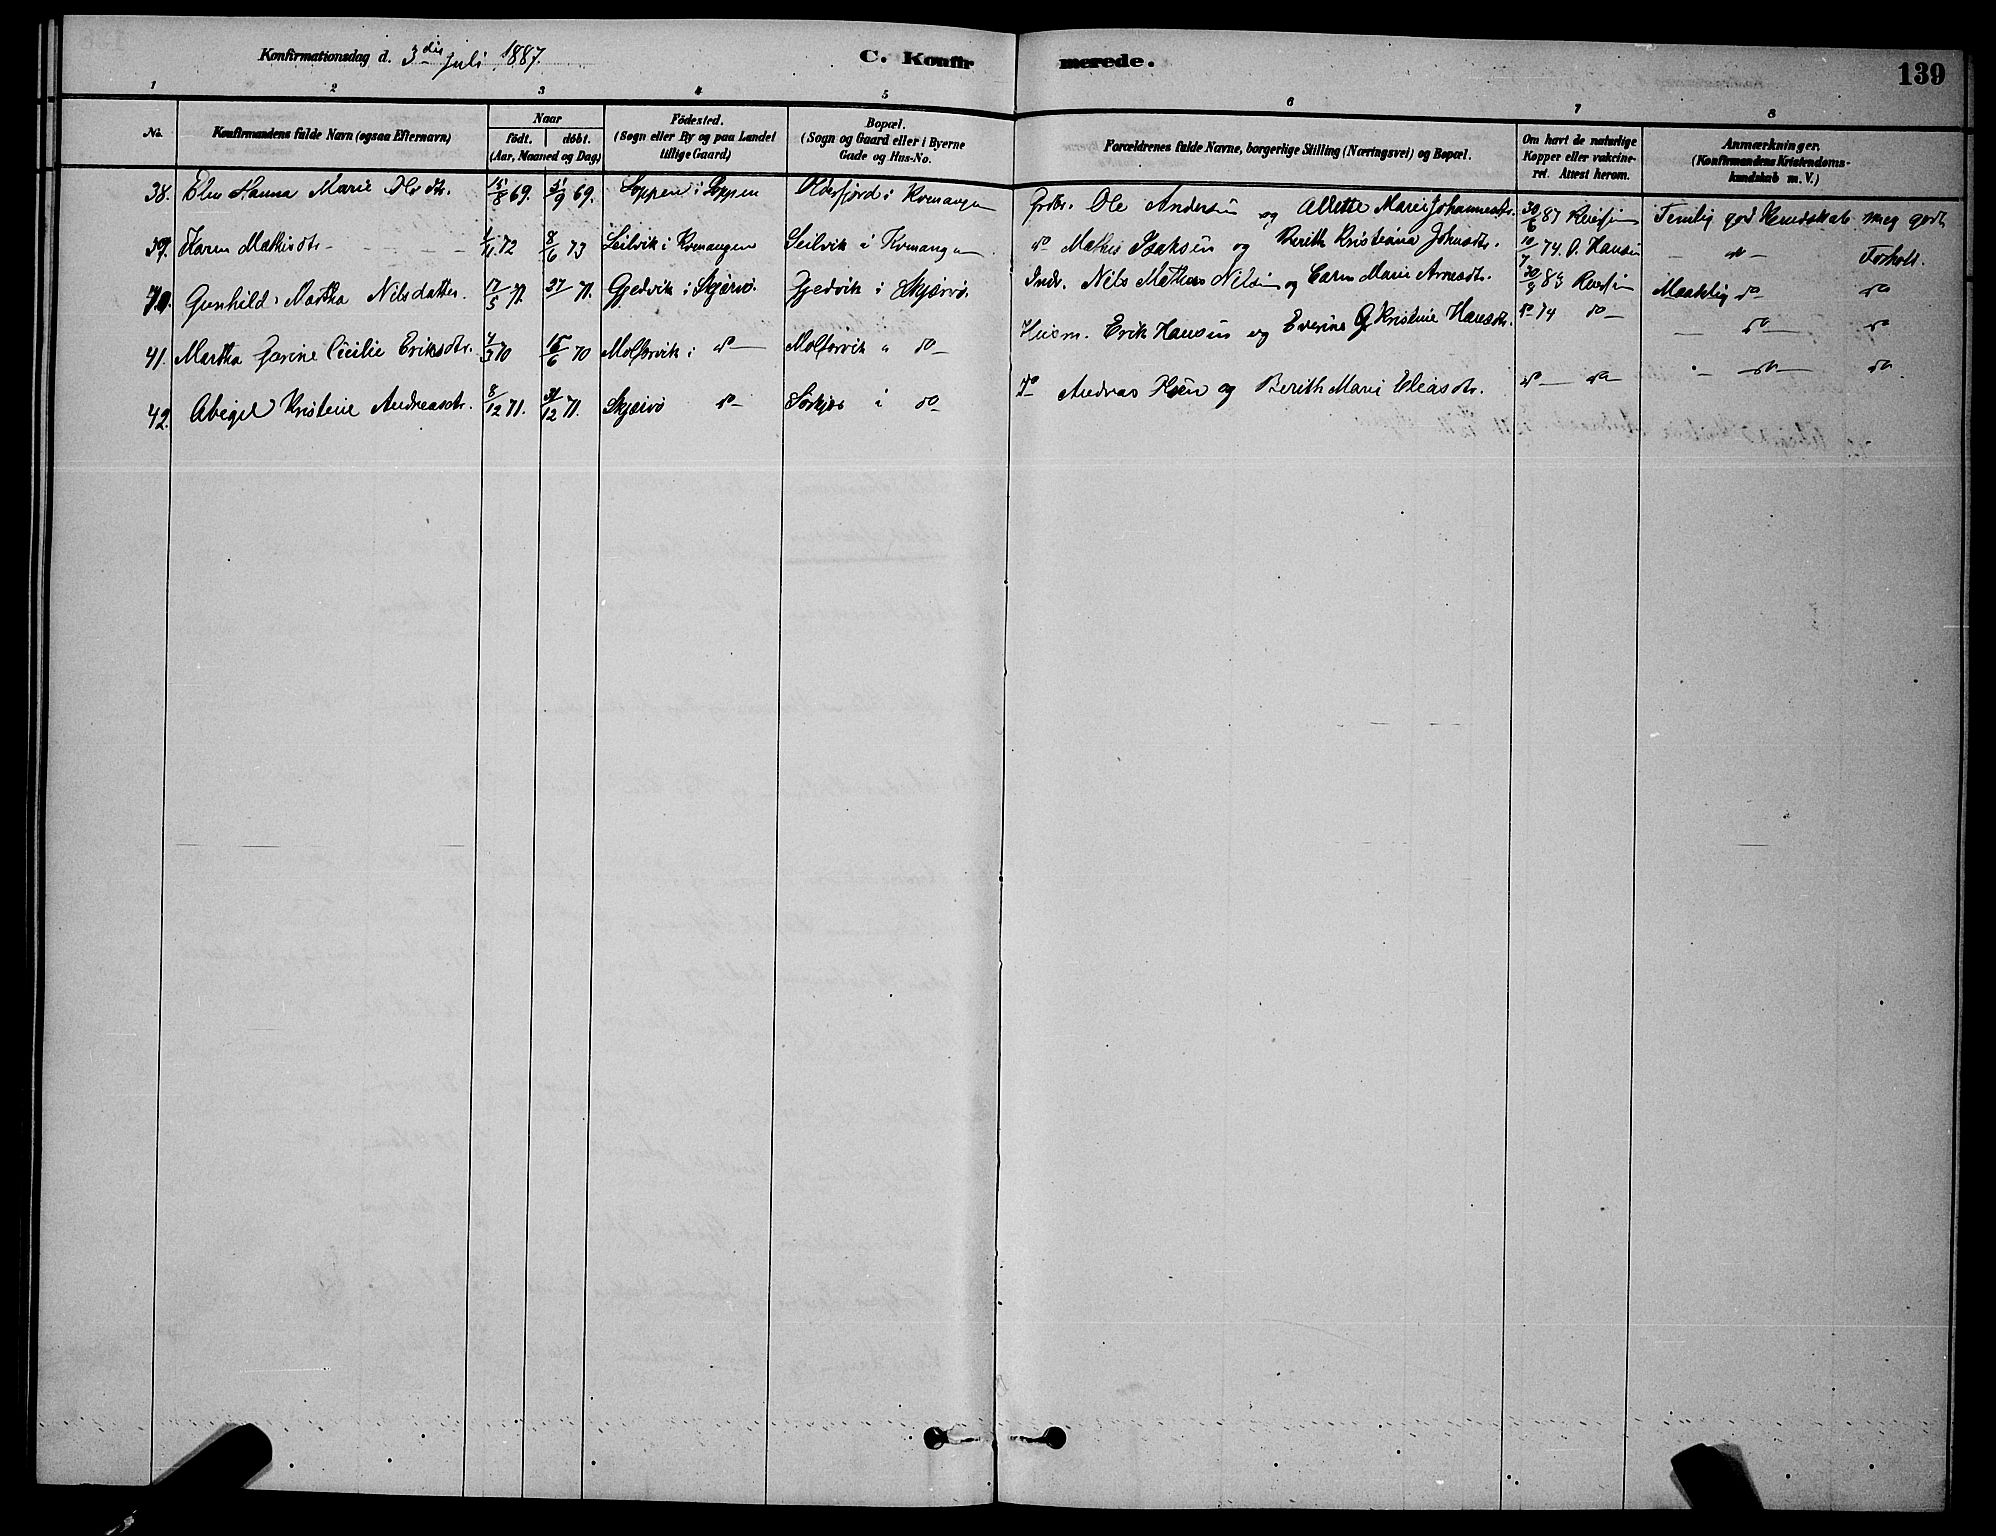 Konfirmationsdag d. 3die Juli 1887.
C. Konfirmerede.
139
1 2 3 4 5 6 7 8
No. Konfirmandens fulde Navn (ogsaa Efternavn) Naar födt. döbt. (Aar, Maaned og Dag) Födested. (Sogn eller By og paa Landet tillige Gaard) Bopæl. (Sogn og Gaard eller i Byerne Gade og Hus-No. Forældrenes fulde Navne, borgerlige Stilling (Næringsvei) og Bopæl. Om havt de naturlige Kopper eller vakcineret. Attest herom. Anmærkninger. (Konfirmandens Kristendomskundskab m. V.)
38. Elen Hanna Marie Olsdtr. 15/8 69. 5/9 69. Loppen i Loppen Oldersfjord i Kvenangen Grdbr. Ole Andersen og Allette Marie Johannesdtr. 30/6 87 Temlig god Kundskab meg godt
39. Karen Mathisdtr. 72 8/6 73 Seilvik i Kvenangen Seilvik i Kvenangen do Mathis Isaksen og Berith Kristiana Johnsdtr. 10/7 74 O. Hansen — do — Forhold.
40. Gunhild Martha Nilsdatter. 17/5 71. 27/ 71. Gjedvik i Skjærvö. Gjedvik i Skjærvö. Indr. Nils Mathias Nilsen og Caren Marie Arnesdtr. 30/9 83 Maadelig do do
41. Martha Gjørine Cecilie Eriksdtr. 4/3 70 15/6 70 Molforvik i do Molforvik " do Husm. Erik Hansen og Everine G Kristine Hansdtr. do 74 do — do — do
42. Abigel Kristine Andreasdtr. 8/12 71. 31/12 71. Skjærvö do Sörkjos i do do Andreas og Berith Marie Eliasdtr. do do — do — do